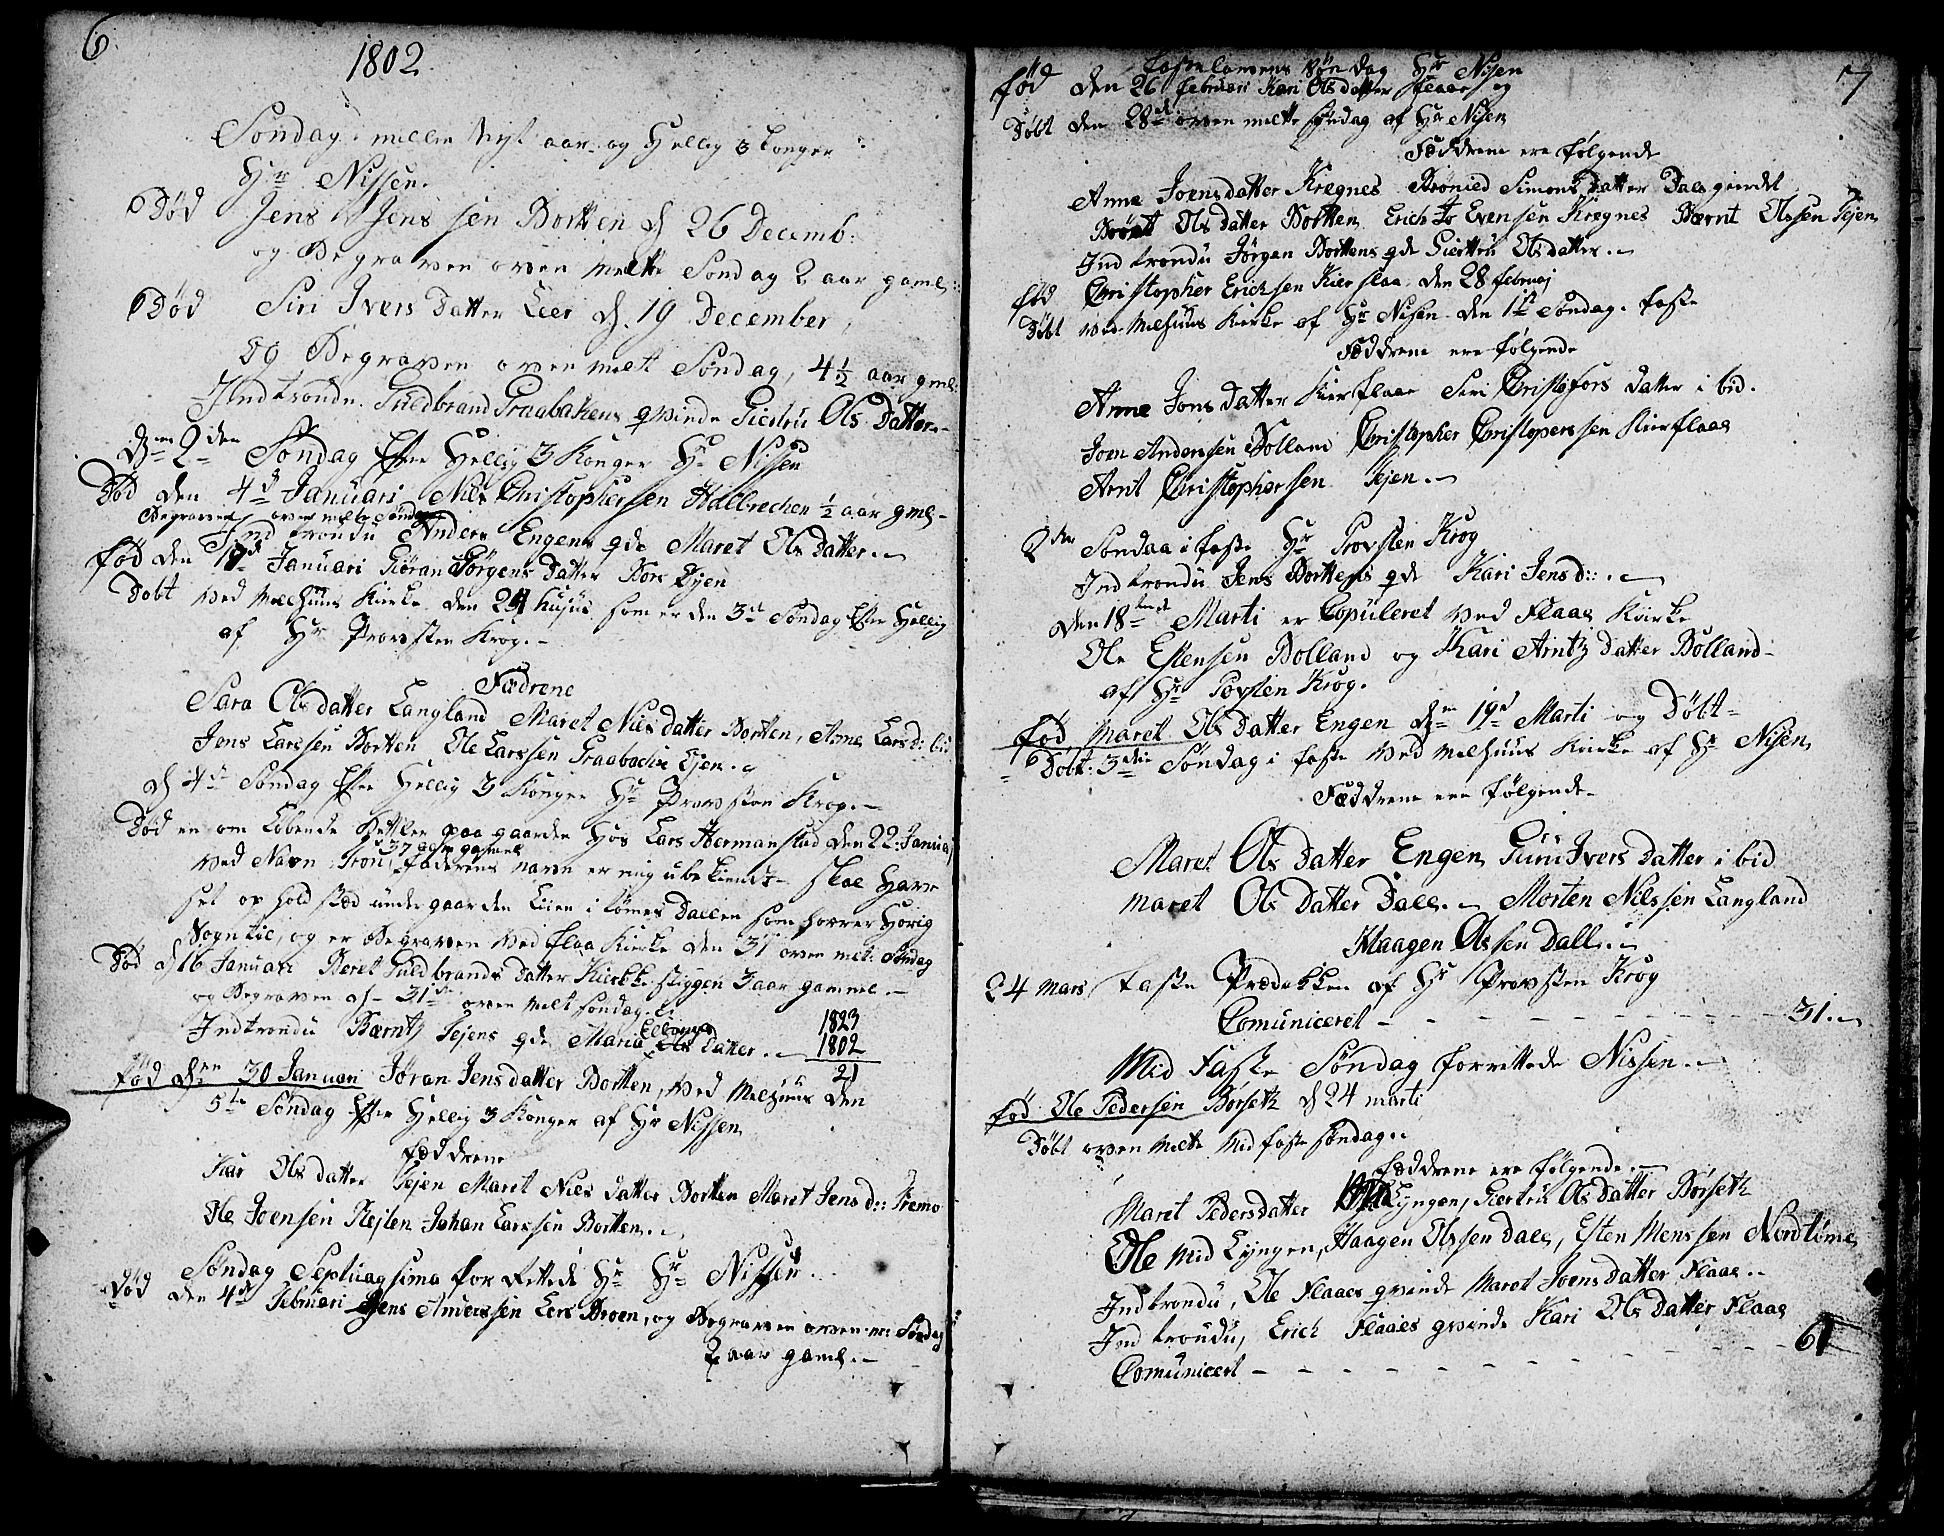 6
1802
Søndag mellem Nyt aar og Hellig 3 Konger
Hr Nissen.
Død Jens Jenssen Bortten d 26 Decemb:
og Begraven oven melte Søndag 2 aar gaml:
Død Siri Ivers Datter Leer d. 19 December,
og Begraven oven melt Søndag, 4½ aar gml:
Indtrondu Guldbrand Graabakens qvinde Giertru Ols Datter.
Den 2den Søndag Efter Hellig 3 Konger Hr Nissen
Død den 4de Januari Nils Christophersen Halbrechen ½ aar gml-
Begraven oven melte Søndag
Indtrondu Anders Engens qde Maret Olsdatter.
fød den Januari Giøran Jørgens Datter Bors Øjen
Døbt ved Melhuus Kirke den 24 hujus som er den 3de Søndag Efter Hellig
af Hr Provsten Krog.-
Fadrene
Sara Olsdatter Langland Maret Nielsdatter Bortten, Anne Larsd: bid
Jens Larssen Bortten Ole Larssen Graabache Ejen.
d 4de Søndag Efter Hellig 3 Konger Hr Provsten Krog.-
Død en om Løbende Bettler paa gaarden Hos Lars Hermanstad den 22 Januaj
37 aar gammel
ved Navn Tron, Faderens navn er mig ubekiendt- skal Have
set op hold sted under gaarden Lien i Lømes Dallen som horer Horig
Sogn til, og er Begraven ved Flaa Kirke den 31 oven melt: Søndag
Død d 16 Januari Beret Guldbrands Datter Kirkke stiggen 3 aar gammel.-
og Begraven d- 31te oven melt søndag.
Indtrondu Bærntz Tejens qde Maria Ellings Datter.- 1823
1802
21
fød den 30 Januari Jøran Jensdatter Bortten, ved Melhuus den
5te Søndag Efter Hellig 3 Konger af Hr Nissen
fæddrene
Kari Olsdatter Tejen Maret Niels datter Bortten Maret Jensd:: Tremo
Ole Joensen Johan Larssen Bortten.
Søndag Septuagsima forrettede Hr Hr Nissen.
Død den 4de Februari Jens Anderssen Lers Broen, og Begraven oven m: Søndag
2 aar gaml.-
7
Fastelavens Søndag Hr Nisen
fød den 26 februari Kari Olsdatter Flaaes og
Døbt den 28de oven melte søndag af Hr Nisen
Fæddrene ere følgende
Anne Joensdatter Kregnes Simons datter Dalsgierdet
Olsdatter Bortten Erich Evensen Kregnes Bærnt Olssen Tejen
Indtrondu Jørgen Borttens qde Giertru Olsdatter.-
fød Christopher Erichsen Kierflaa den 28 februaj
Døbt ved Melhuus Kirke af Hr Nisen den 1te Søndag faste
Fæddrene ere følgende
Anne Jonsdatter Kierflaae Siri Christofors datter i bid.
Joen Anderssen Bolland Christopher Christoperssen Kierflaae
Arnt Christophersen Tejen.-
2den Søndaa i faste Hr Provsten Krog
Indtrondu Jens Borttens qde Kari Jensd::.-
den 18tende Marti er Copuleret ved Flaae Kirke
Ole Estensen Bolland og Kari Arntz datter Bolland-
af Hr Povsten Krog.
fød Maret Olsdatter Engen den 19de Marti og Døbt-
Døbt: 3die Søndag i faste ved Melhuus Kirke af Hr Nisen
Fæddrene ere følgende-
Maret Ols datter Engen Guru Ivers datter i bid
Maret Ols datter Dall.- Morten Nilssen Langland
Haagen Olssen Dall.-
24 Mars faste Prædekken af Hr Provsten Krog
Comuniceret - - - - - - - 31.-
Mid Faste Søndag forrettede Nissen.-
fød Ole Pedersen Børseth d 24 marti
Døbt oven melte Mid faste søndag.
Fæddrene ere følgende.-
Maret Pedersdatter Lyngen, Giertru Olsdatter Børseth
Ole Mid Lyngen, Haagen Olssen Dall, Esten Monssen Nordlømes
Indtrondu, Ole Flaaes qvinde Maret Joensdatter Flaae.-
Indtrondu, Erich Flaaes qvinde Kari Olsdatter Flaae
Comunicert - - - - - - - 61